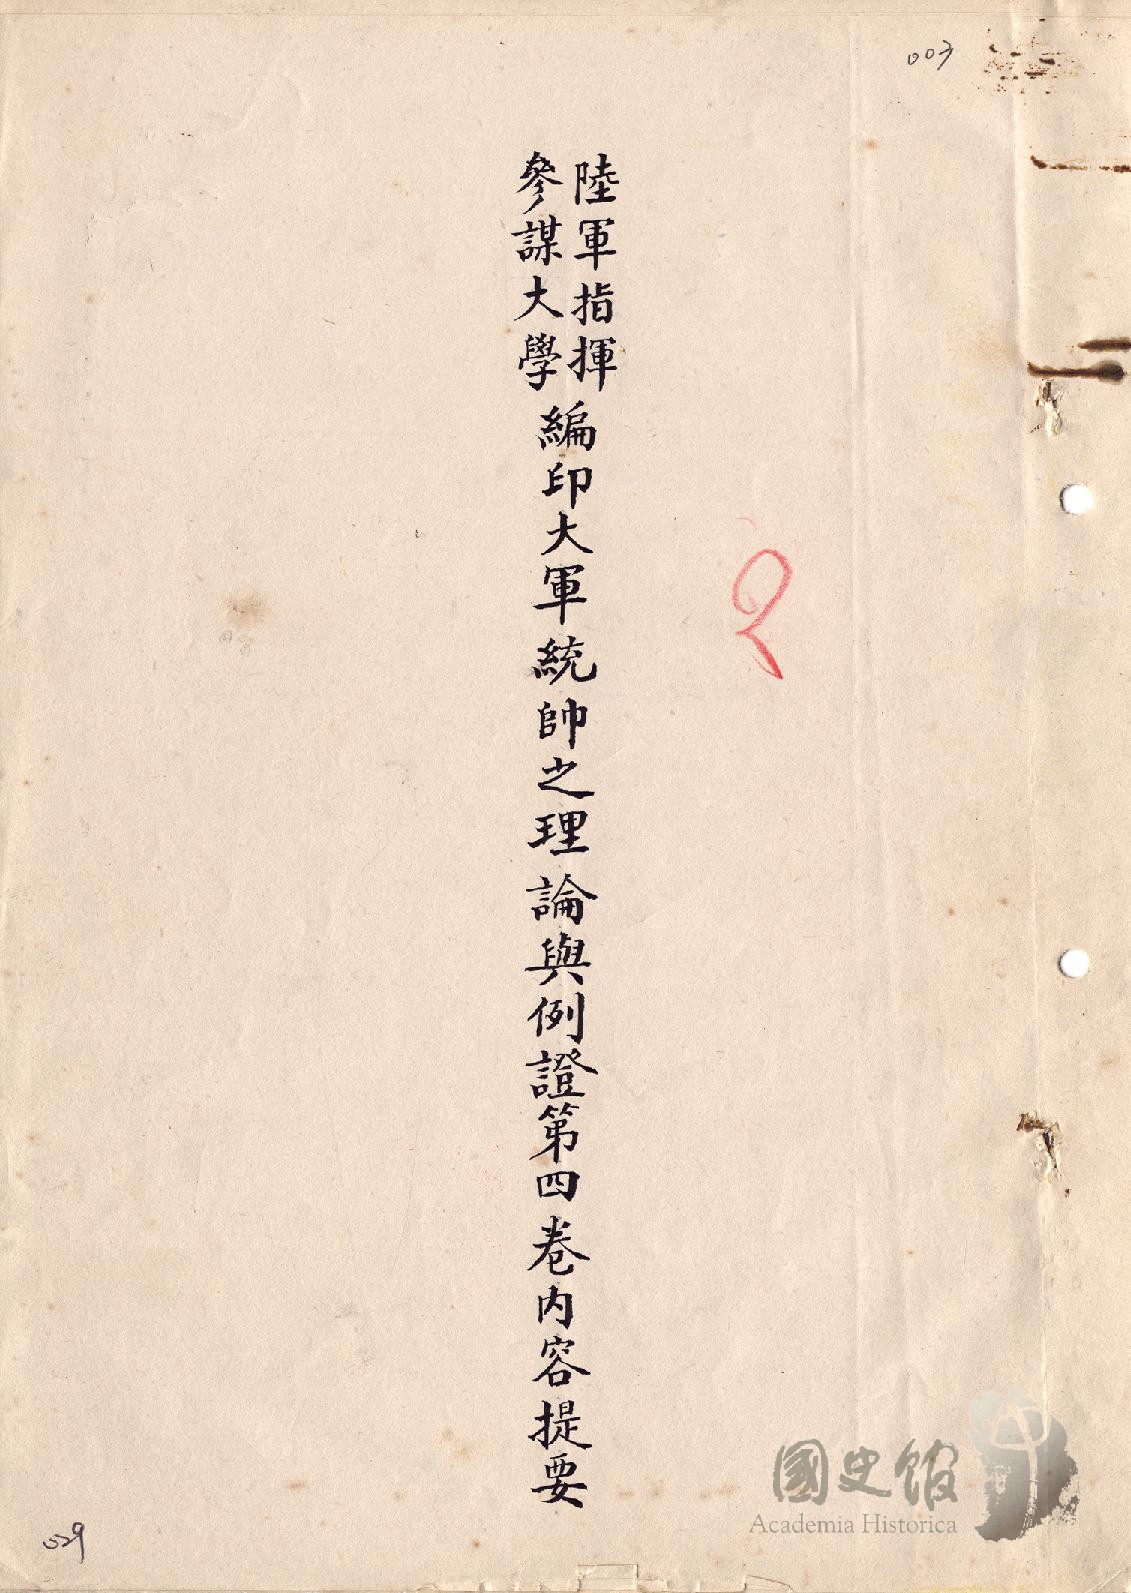 003
陸軍指揮
參謀大學
編印大軍統帥之理論與例證第四卷內容提要
國史館
Academia Historica
529